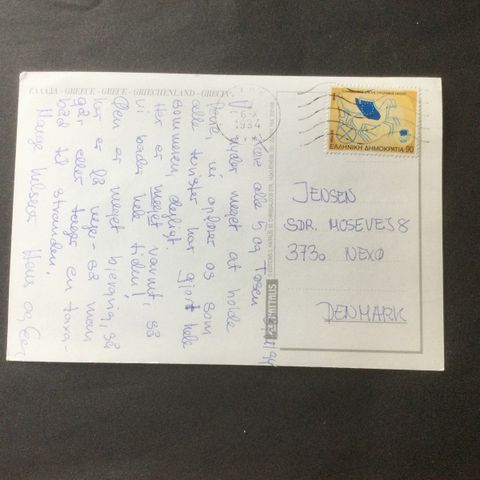 ΕΛΛΑΔΑ - GREECE - GRECE - GRIECHENLAND - GRECIA
Kære alle 5 og Tøsen
Vi nyder meget at holde
ferie, vi opfører os som
alle turister har gjort hele
sommeren, dejligt
Her er meget varmt, så
vi bader hele tiden!
Øen er meget så
her er få veje - så man
går eller tager en taxa-
båd til stranden.
Mange hilsner Hans og
1994
ΕΛΛΗΝΙΚΗ ΔΗΜΟΚΡΑΤΙΑ 90
JENSEN
SDR. MOSEVEJ 8
3730 NEXØ
DENMARK